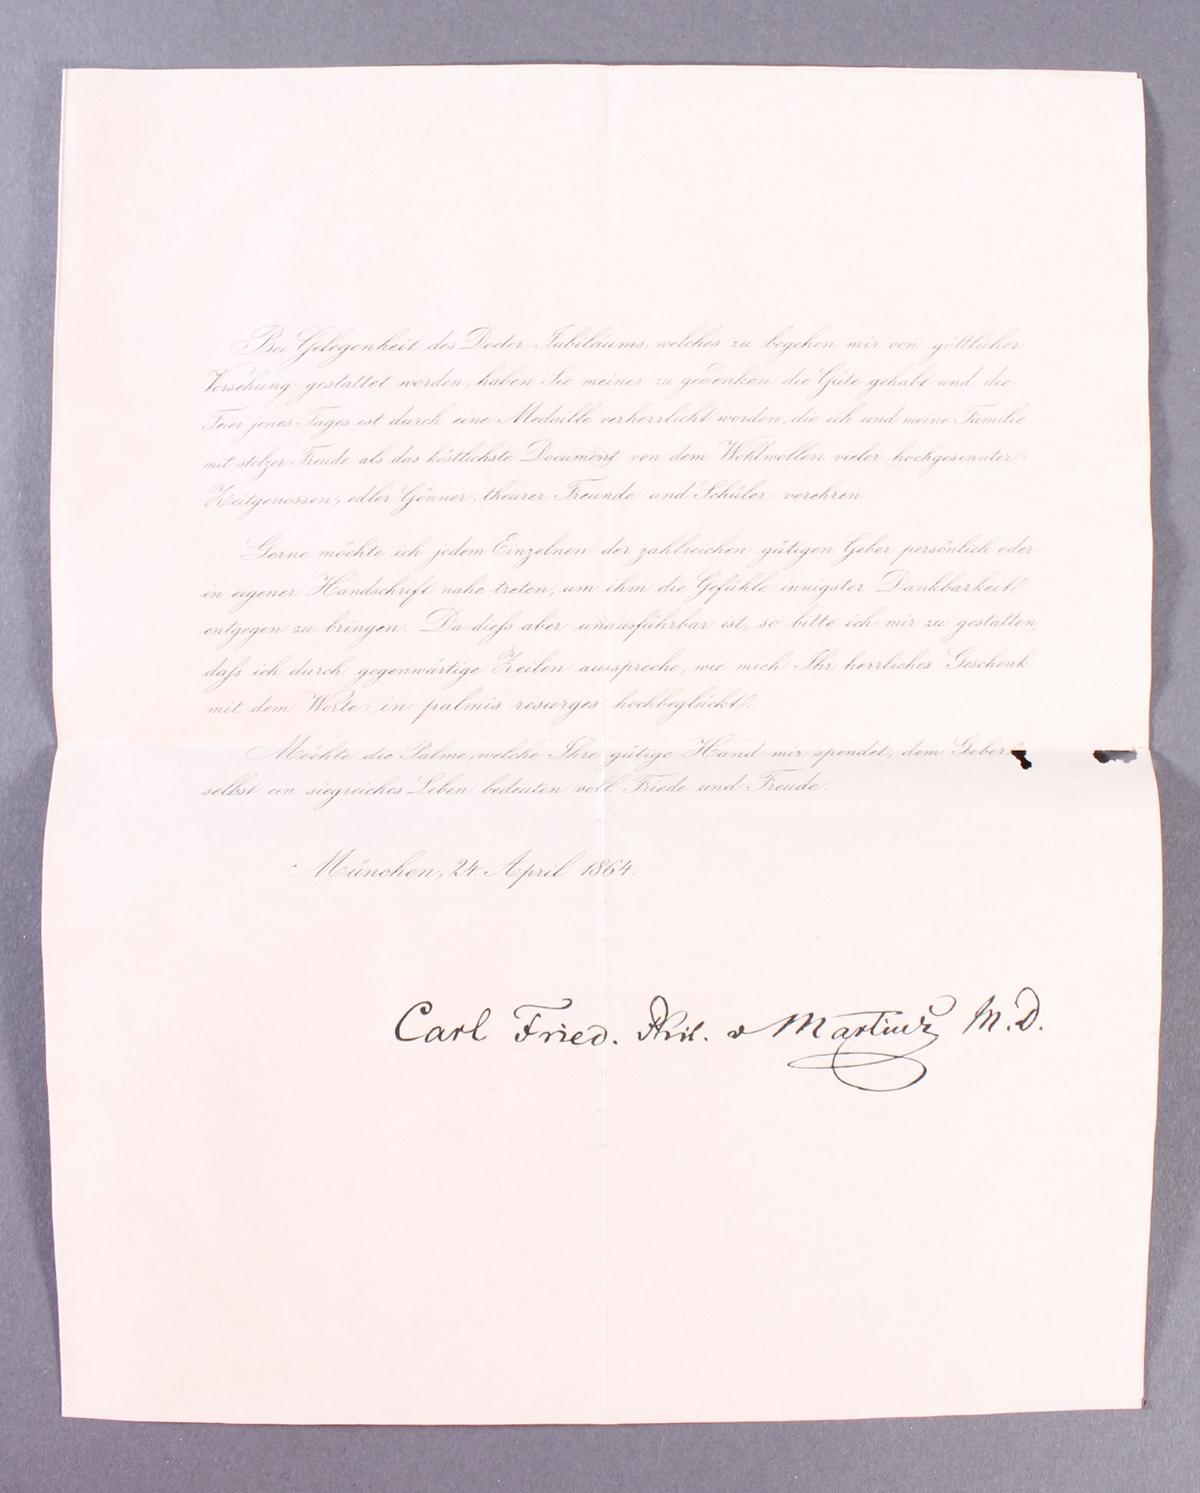 Bei Gelegenheit des Doctor-Jubiläums, welches zu begehen mir von göttlicher
Vorsehung gestattet worden, haben Sie meiner zu gedenken die Güte gehabt und die
Feier jenes Tages ist durch eine Medaille verherrlicht worden, die ich und meine Familie
mit stolzer Freude als das köstlichste Document von dem Wohlwollen vieler hochgesinnter
Zeitgenossen, edler Gönner, theurer Freunde und Schüler verehren.
Gerne möchte ich jedem Einzelnen der zahlreichen gütigen Geber persönlich oder
in eigener Handschrift nahe treten, um ihm die Gefühle innigster Dankbarkeit
entgegen zu bringen. Da diefs aber unausführbar ist, so bitte ich mir zu gestatten,
dafs ich durch gegenwärtige Zeilen ausspreche, wie mich Ihr herrliches Geschenk
mit dem Worte: in palmis resurges hochbeglückt.
Möchte die Palme, welche Ihre gütige Hand mir spendet, dem Geber
selbst ein siegreiches Leben bedeuten voll Friede und Freude.
München, 24. April 1864.
Carl Fried. Phil. v Martius M.D.